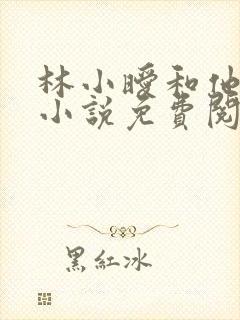 林小曖和他
小說免費閱
黑紅冰